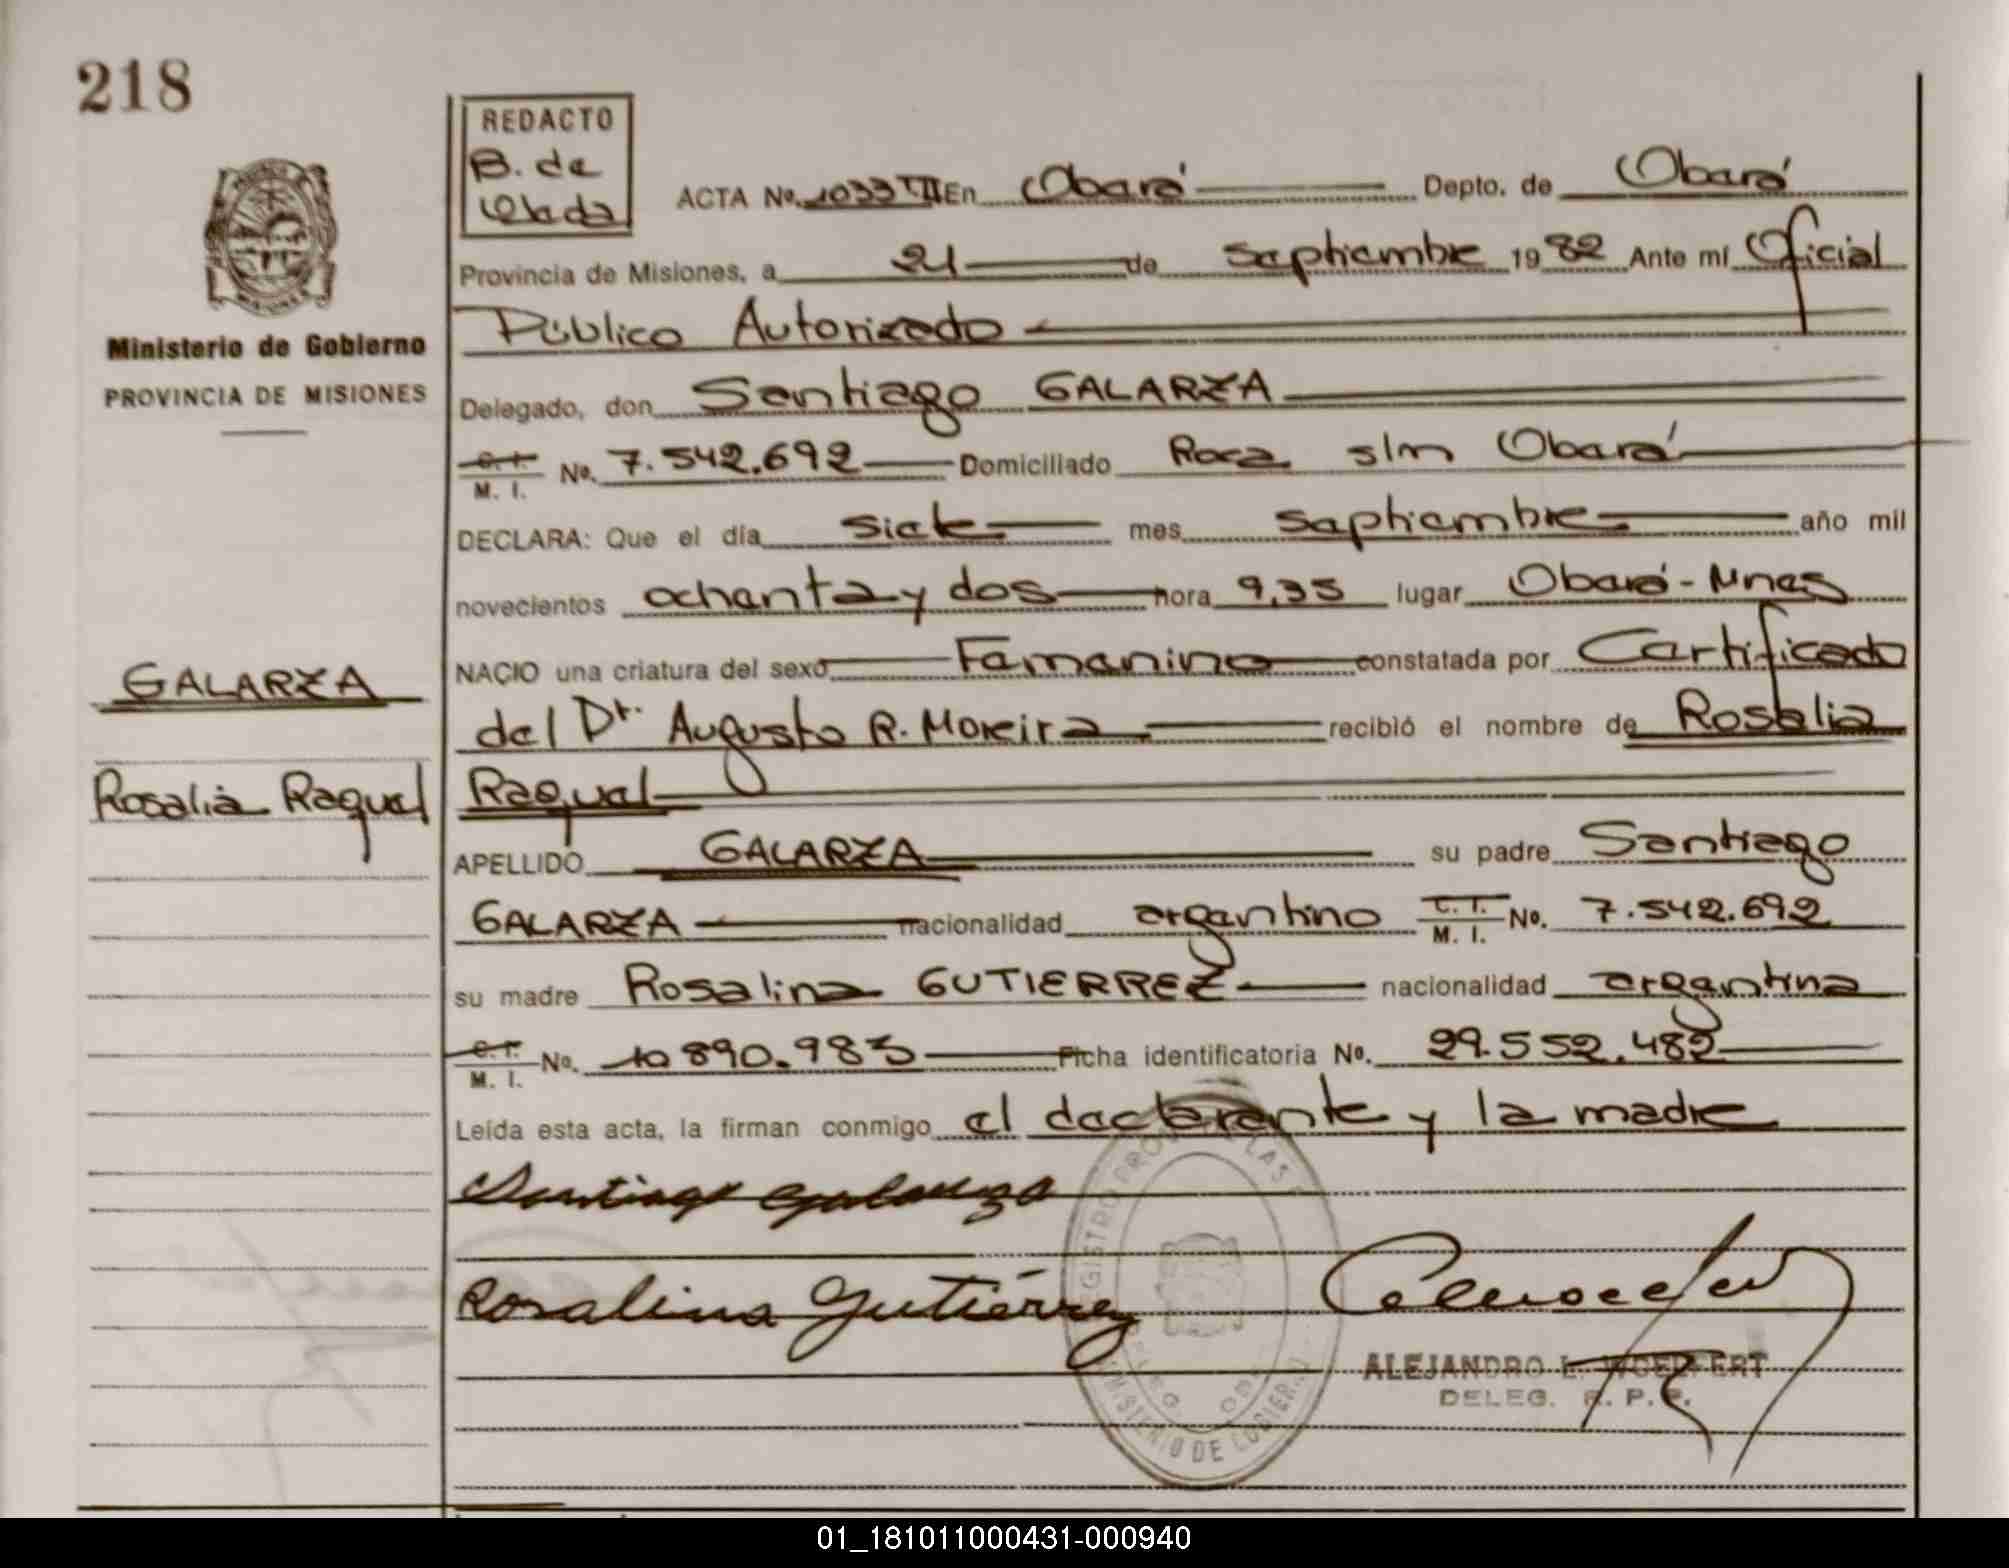 218
REDACTO
B. de
ACTA No. 1033 TII En Oberá Depto. de Oberá
Provincia de Misiones, a 21 de Septiembre 1982 Ante mí Oficial
Público Autorizado
Ministerio de Gobierno
PROVINCIA DE MISIONES
Delegado, don Santiago GALARZA
C. I.
M. I. No. 7.542.692 Domiciliado Roca s/n Oberá
DECLARA: Que el día siete mes septiembre año mil
novecientos ochenta y dos hora 9,35 lugar Oberá - Mnes
NACIO una criatura del sexo Femenino constatada por Certificado
GALARZA
del Dr. Augusto R. Moreira recibió el nombre de Rosalia
Rosalia Raquel
Raquel
APELLIDO GALARZA su padre Santiago
GALARZA nacionalidad argentino C. I.
M. I. No. 7.542.692
su madre Rosalina GUTIERREZ nacionalidad argentina
C. I.
M. I. No. 10.890.983 Ficha identificatoria No. 29.552.482
Leída esta acta, la firman conmigo el declarante y la madre
Santiago Galarza
Rosalina Gutiérrez
ALEJANDRO L. WOELFERT
DELEG. R. P. P.
REGISTRO PROV. DE LAS P
MINISTERIO DE GOBIERNO
DELEG OBERA
01_181011000431-000940